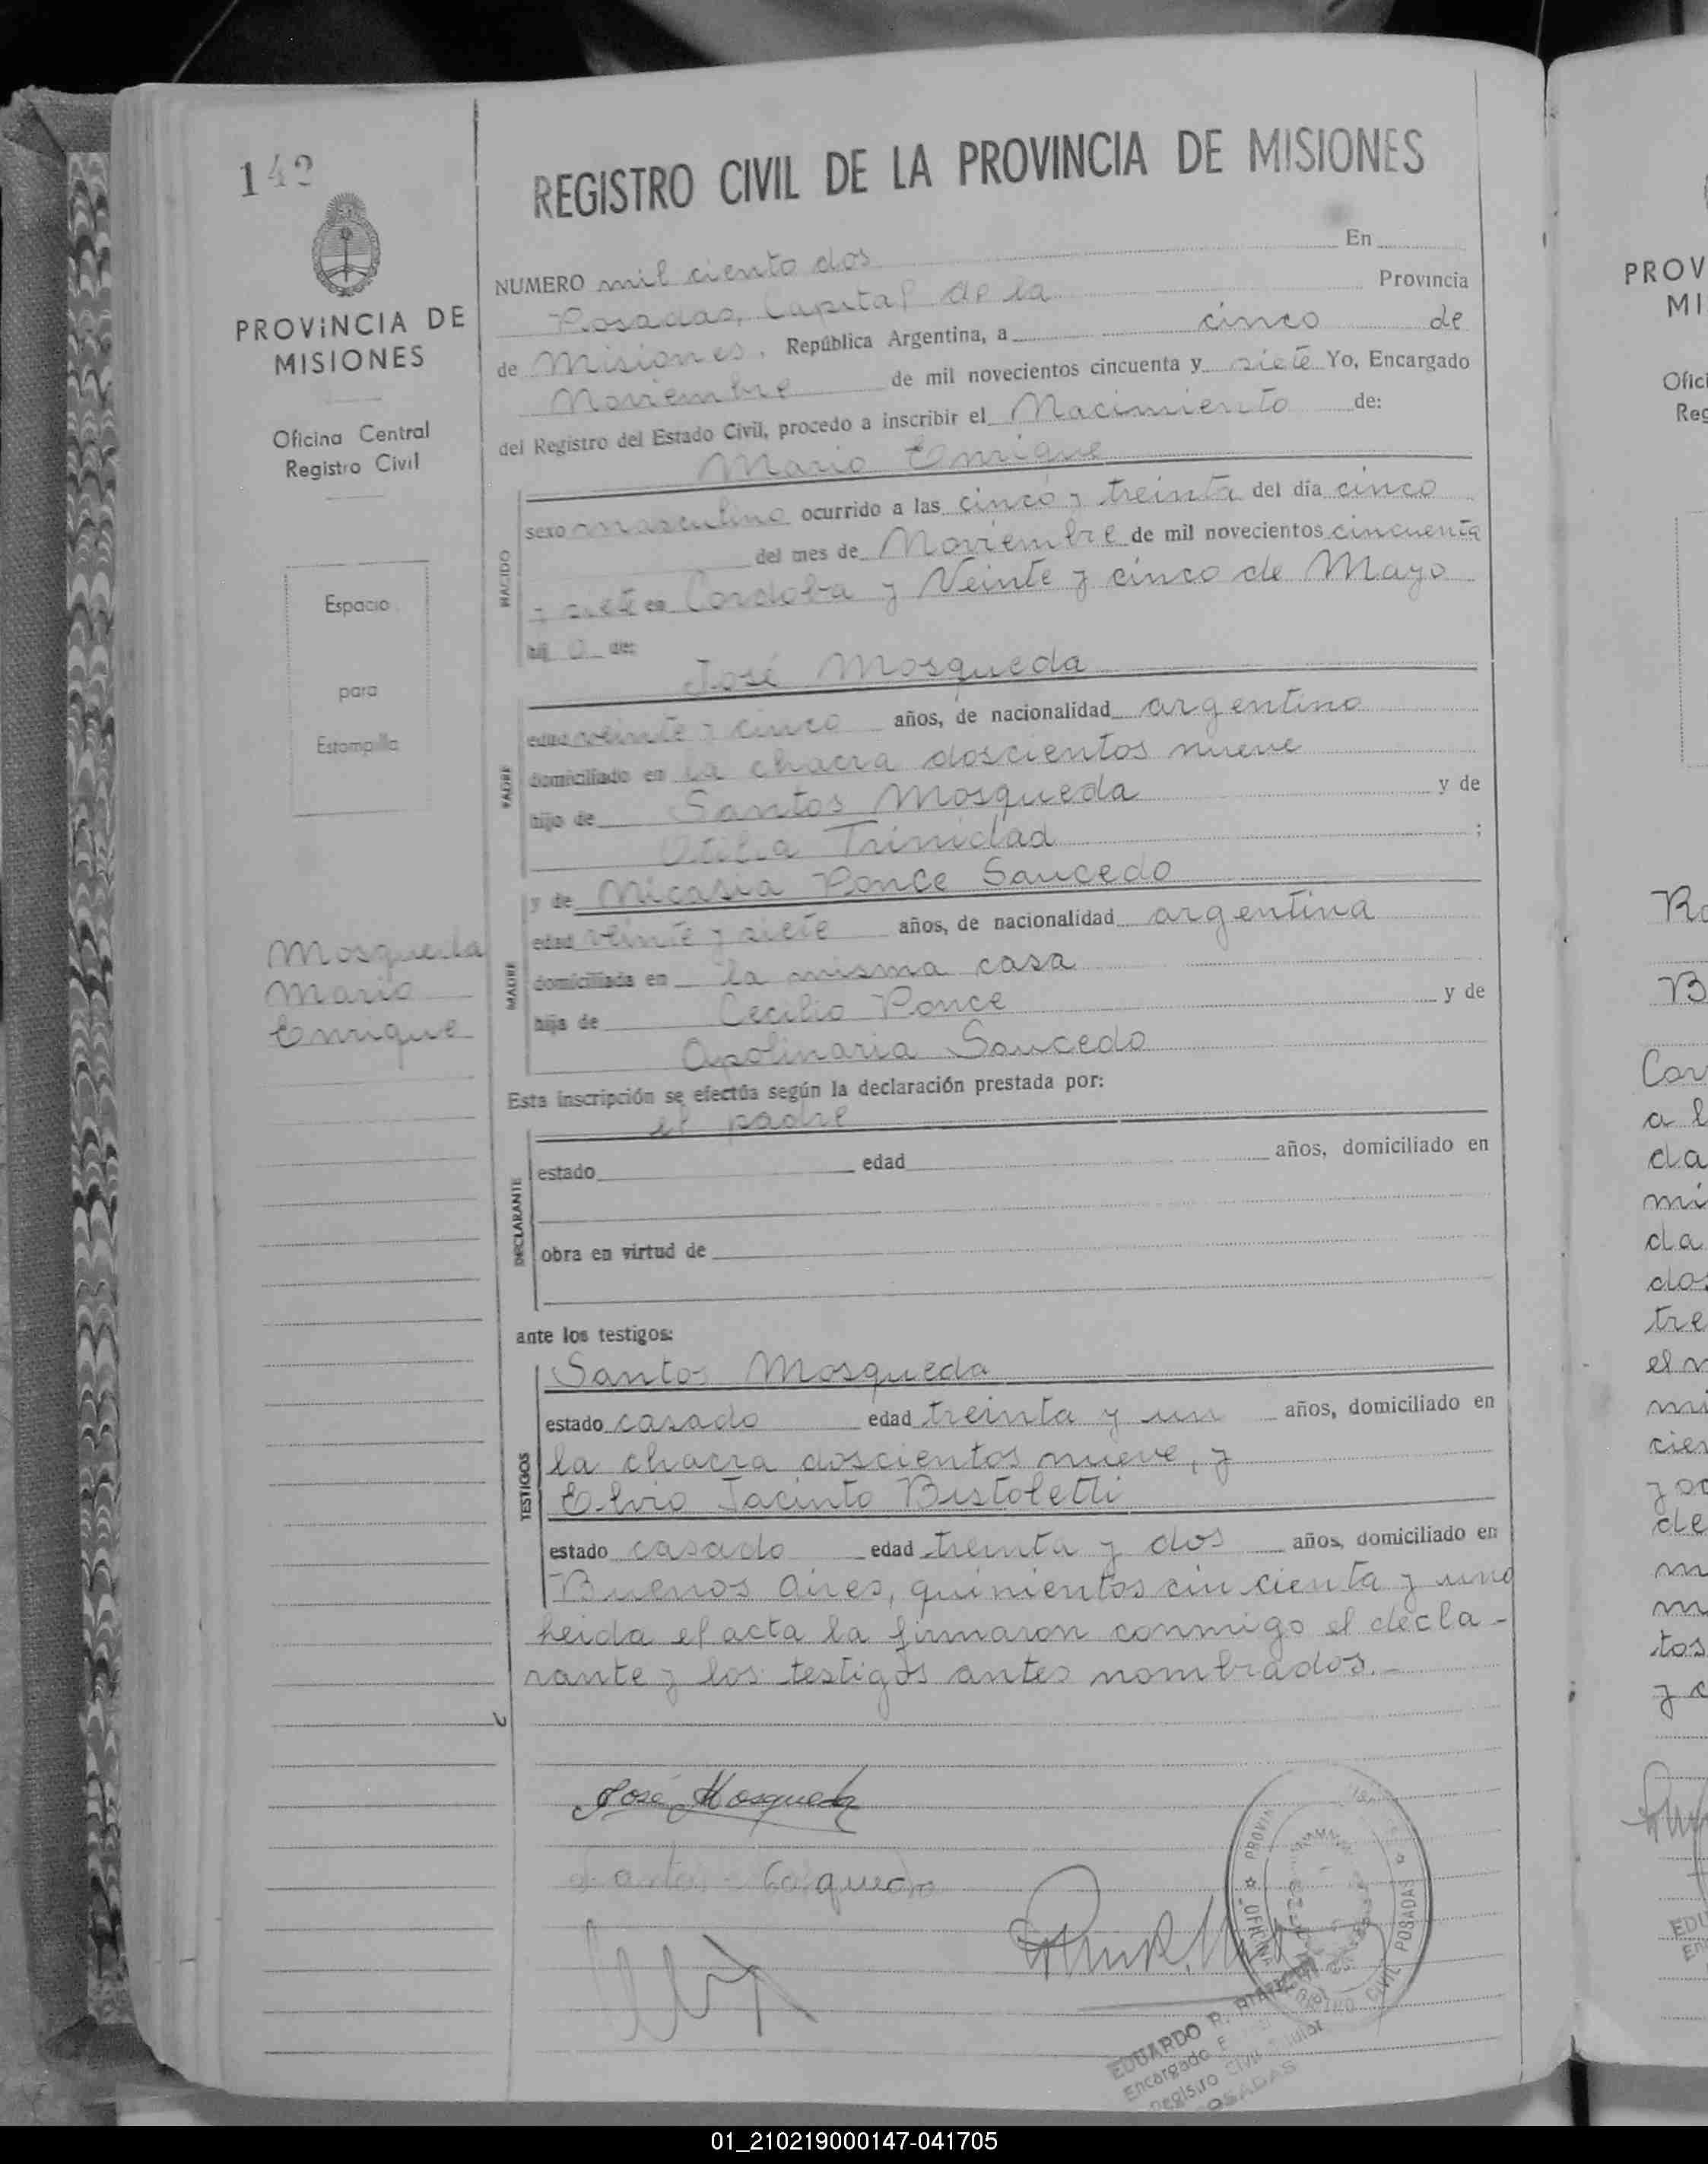 142
PROVINCIA DE
MISIONES
Oficina Central
Registro Civil
Espacio
para
Estampilla
Mosqueda
Mario
Enrique
REGISTRO CIVIL DE LA PROVINCIA DE MISIONES
NUMERO mil ciento dos En
Posadas, Capital de la Provincia
de Misiones, República Argentina, a cinco de
Noviembre de mil novecientos cincuenta y siete Yo, Encargado
del Registro del Estado Civil, procedo a inscribir el Nacimiento de:
Mario Enrique
NACIDO
sexo masculino ocurrido a las cinco y treinta del día cinco
del mes de Noviembre de mil novecientos cincuenta
y siete en Cordoba y Veinte y cinco de Mayo
hij o de:
José Mosqueda
PADRE
edad veinte y cinco años, de nacionalidad argentino
domiciliado en la chacra doscientos nueve
hijo de Santos Mosqueda y de
Otilia Trinidad ;
y de Nicasia Ponce Saucedo
MADRE
edad veinte y siete años, de nacionalidad argentina
domiciliada en la misma casa
hija de Cecilio Ponce y de
Apolinaria Saucedo
Esta inscripción se efectúa según la declaración prestada por:
el padre
DECLARANTE
estado edad años, domiciliado en
obra en virtud de
ante los testigos:
Santos Mosqueda
TESTIGOS
estado casado edad treinta y un años, domiciliado en
la chacra doscientos nueve, y
Elvio Jacinto Bistoletti
estado casado edad treinta y dos años, domiciliado en
Buenos Aires, quinientos cincuenta y uno
heida el acta la firmaron conmigo el decla-
rante y los testigos antes nombrados.-
José Mosqueda
Santos Mosqueda
PROVIN
OFICINA
REGISTRO CIVIL POSADAS
EDUARDO R.
Encargado
Registro Civil
POSADAS
PROV
MI
Ofici
Reg
Ro
B
Cor
a l
da
mi
da
dos
tre
el n
mi
cien
de
m
m
tos
EDU
En
01_210219000147-041705